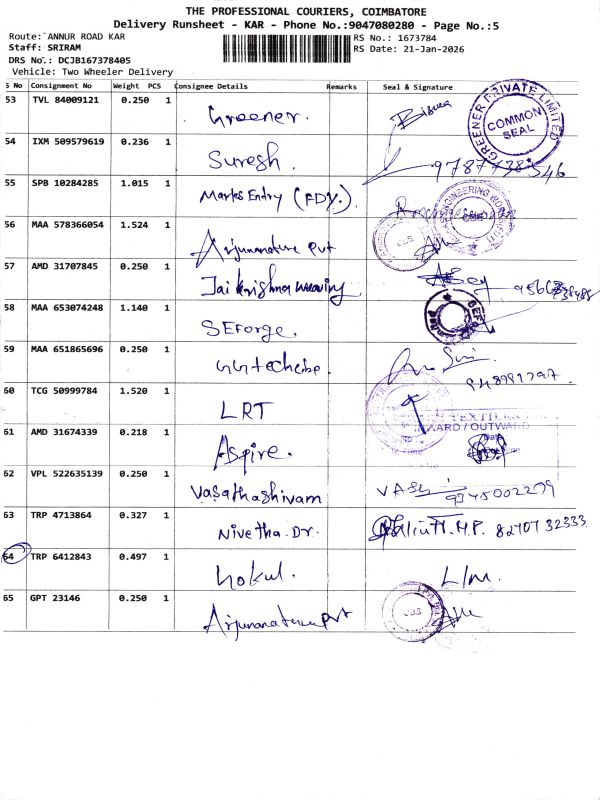 THE PROFESSIONAL COURIERS, COIMBATORE
Delivery Runsheet - KAR - Phone No.:9047080280 - Page No.:5
Route: ANNUR ROAD KAR
RS No.: 1673784
Staff: SRIRAM
RS Date: 21-Jan-2026
DRS No.: DCJB167378405
Vehicle: Two Wheeler Delivery
S No Consignment No Weight PCS Consignee Details Remarks Seal & Signature
53 TVL 84009121 0.250 1 Greener. GREENER PRIVATE LIMITED COMMON SEAL
54 IXM 509579619 0.236 1 Suresh.
55 SPB 10284285 1.015 1 Marks Entry (FDY.)
56 MAA 578366054 1.524 1 Arjunanature Pvt
57 AMD 31707845 0.250 1 Jai Krishna weaving
58 MAA 653074248 1.140 1 SEForge.
59 MAA 651865696 0.250 1
60 TCG 50999784 1.520 1 LRT
INWARD / OUTWARD
61 AMD 31674339 0.218 1 Aspire.
62 VPL 522635139 0.250 1 Vasathashivam
63 TRP 4713864 0.327 1 Nivetha. Dr. 82707 32333
64 TRP 6412843 0.497 1 Gokul.
65 GPT 23146 0.250 1 Arjunanature Pvt